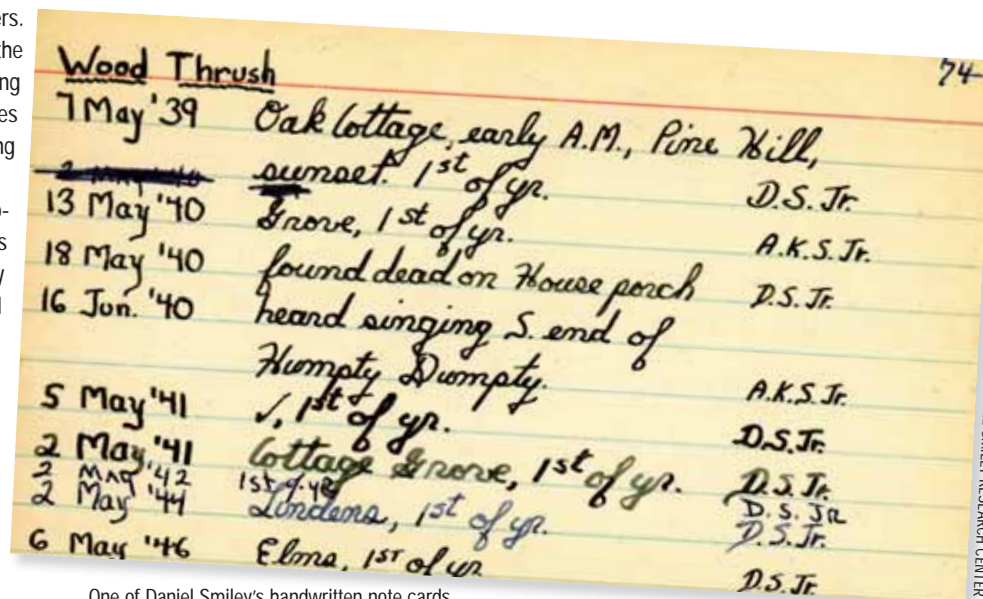 ers.
the
ing
es
ing
o-
s
y
Wood Thrush 74
7 May '39 Oak Cottage, early A.M., Pine Hill,
sunset. 1st of yr. D.S. Jr.
13 May '40 Grove, 1st of yr. A.K.S. Jr.
18 May '40 found dead on House porch D.S. Jr.
16 Jun. '40 heard singing S. end of
Humpty Dumpty. A.K.S. Jr.
5 May '41 ✓, 1st of yr. D.S. Jr.
2 May '41 Cottage Grove, 1st of yr. D.S. Jr.
2 May '42 1st of yr D.S. JR
2 May '44 Lindens, 1st of yr. D.S. Jr.
6 May '46 Elms, 1st of yr D.S. Jr.
One of Daniel Smiley's handwritten note cards
SMILEY RESEARCH CENTER